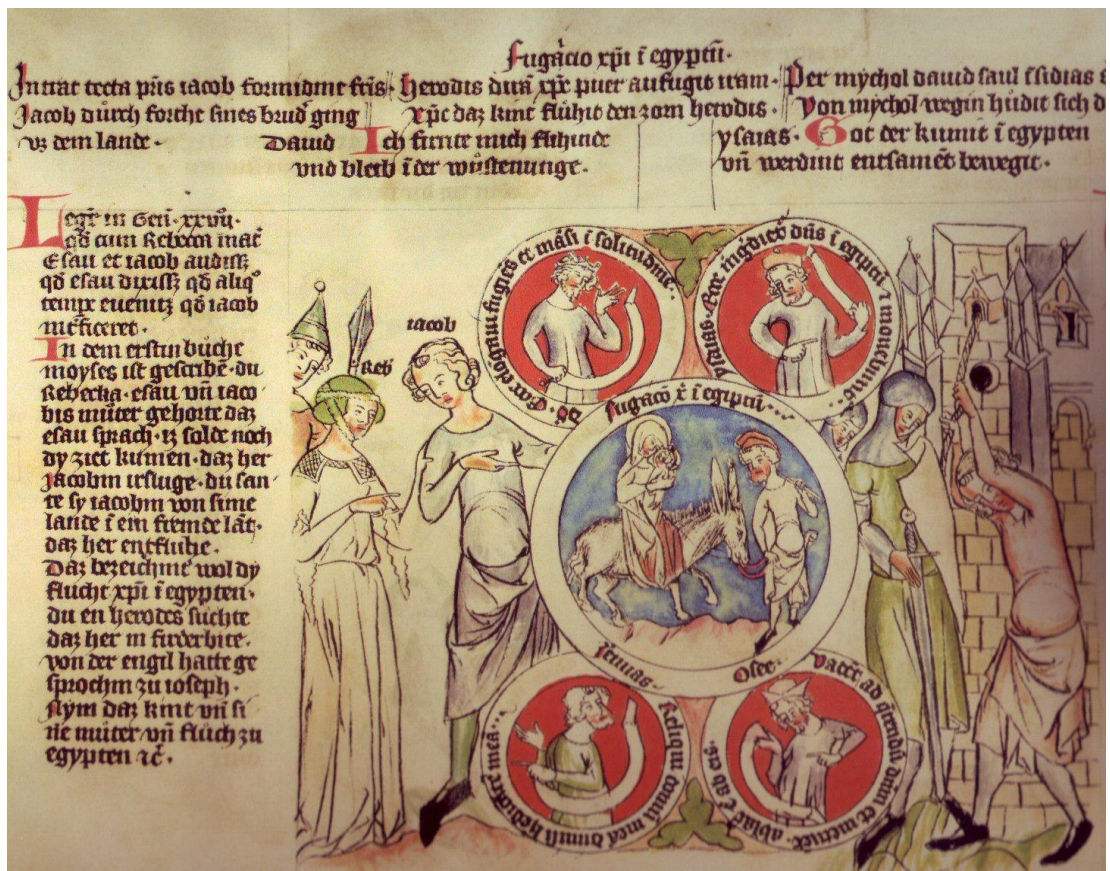 fugacio xpi ĩ egyptũ·
Intrat tecta pris iacob formidine fris·
Jacob dürch forcht sines brud ging
vz dem lande·
herodis dirã xpc puer aufugit iram·
xpc daz kint flühit den zorn herodis·
David Ich firrite mich flihinde
vnd bleib ĩ der wůstenunge·
Per mychol david saul ĩsidias
Von mychol wegin hüdit sich d
ysaias· Got der kumit ĩ egypten
vñ werdint entsamẽt bewegit·
Legit in Gen· xxvii·
qd cum Rebecca mat
Esau et iacob audiss
qd esau dixiss qd aliqo
tempe evenit qd iacob
inficeret·
In dem erstin büche
moyses ist geschribẽ· du
Rebecka· esau vñ iaco
bis müter gehorte daz
esau sprach· iz solde noch
dy ziet kumen· daz her
Jacobm irsluge· du san
te sy iacobm von sime
lande ĩ ein fremde lãt·
daz her entfluhe·
Daz bezeichint wol dy
flucht xpi ĩ egypten·
du en herodes suchte
daz her in firderbite·
von der engil hatte ge
sprochin zu ioseph·
Nym daz kint vñ si
ne müter· vñ fluch zu
egypten ꝛc̃·
Reb
iacob
Dd· Ecce elongavi fugiẽs et mãsi ĩ solitudine·
ysaias· Ecce ingrediet dñs ĩ egiptũ ꝛ movebunt
fugacõ xi ĩ egiptũ
Jeremias· Reliqui domũ meã dimisi hẽditatẽ meã
Osee· Vadet ad qrendũ dñm et ñ inveniet· ablat ẽ ab eis·